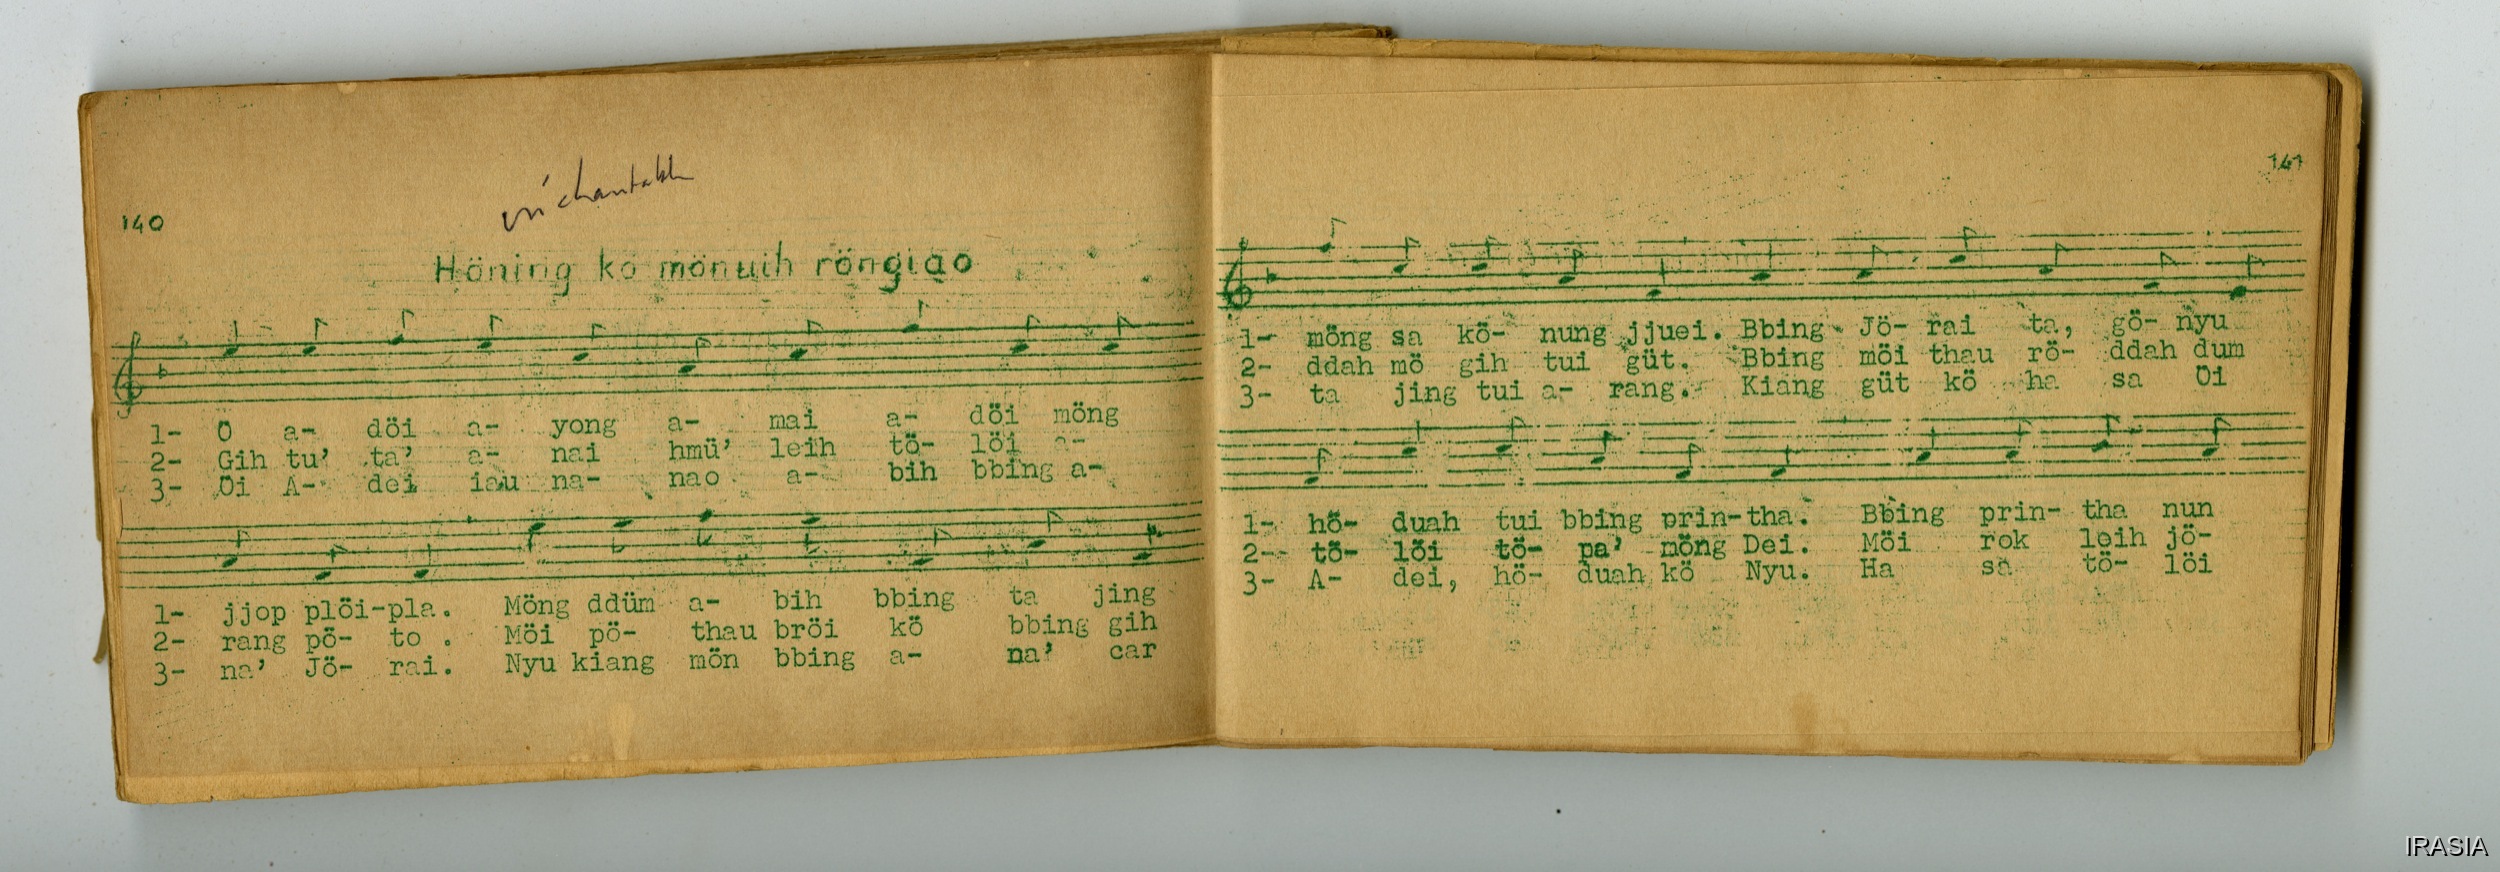 140
Höning kö mönuih röngiao
1- Ö a- döi a- yong a- mai a- döi möng
2- Gih tu' ta' a- nai hmü' leih tö- löi a-
3- Öi A- dei iau na- nao a- bih bbing a-
1- jjop plöi-pla. Möng ddüm a- bih bbing ta jing
2- rang pö- to . Möi pö- thau bröi kö bbing gih
3- na' Jö- rai. Nyu kiang mön bbing a- na' car
141
1- möng sa kö- nung jjuei. Bbing Jö- rai ta, gö- nyu
2- ddah mö gih tui güt. Bbing möi thau rö- ddah dum
3- ta jing tui a- rang. Kiang güt kö ha sa Öi
1- hö- duah tui bbing prin-tha. Bbing prin- tha nun
2- tö- löi tö- pa' möng Dei. Möi rok leih jö-
3- A- dei, hö- duah kö Nyu. Ha sa tö- löi
IRASIA